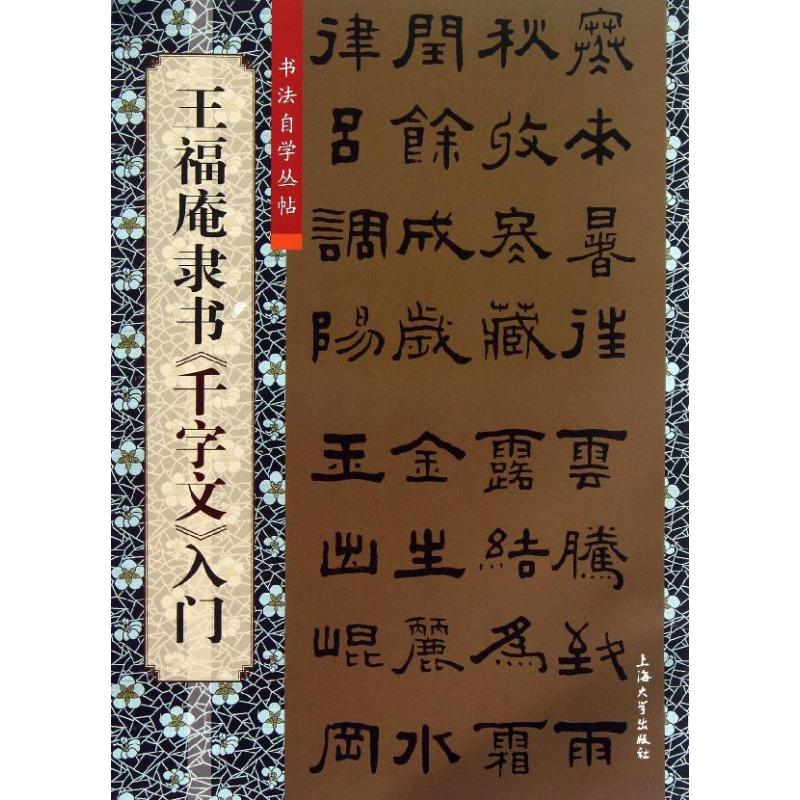 王福庵隶书《千字文》入门
书法自学丛帖
寒来暑往雲騰致雨
秋收冬藏露結為霜
閏餘成歲金生麗水
律呂調陽玉出崐岡
上海大学出版社